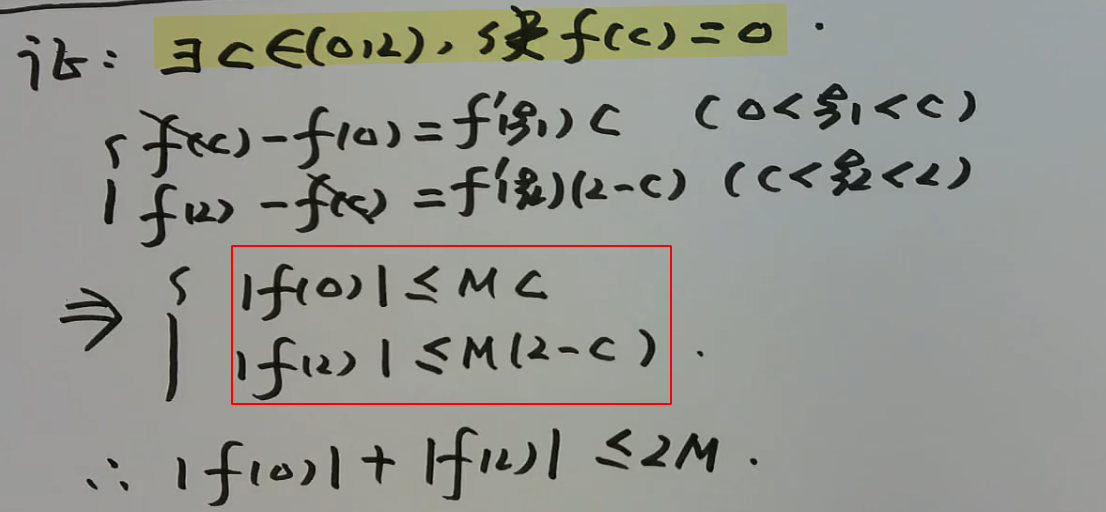 证: ∃ c ∈ (0,2), 使 f(c) = 0.
{ f(c) - f(0) = f'(ξ₁) c (0 < ξ₁ < c)
f(2) - f(c) = f'(ξ₂)(2-c) (c < ξ₂ < 2)
⇒ { |f(0)| ≤ M c
|f(2)| ≤ M(2-c).
∴ |f(0)| + |f(2)| ≤ 2M.